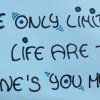 E ONLY LIMI
LIFE ARE T
ONE'S YOU M